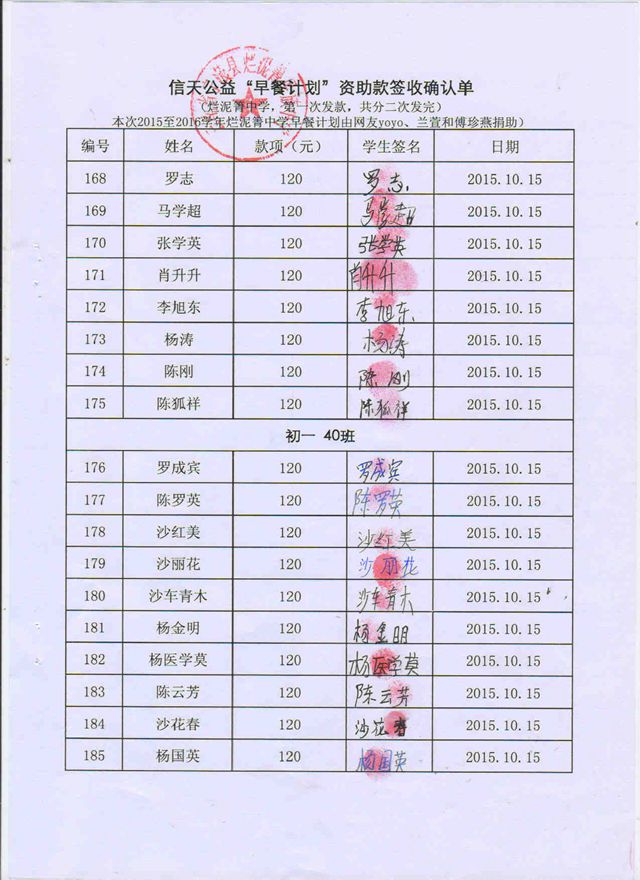 信天公益“早餐计划”资助款签收确认单
（烂泥箐中学，第一次发款，共分二次发完）
本次2015至2016学年烂泥箐中学早餐计划由网友yoyo、兰萱和傅珍燕捐助）
编号 姓名 款项（元） 学生签名 日期
168 罗志 120 罗志 2015.10.15
169 马学超 120 马学超 2015.10.15
170 张学英 120 张学英 2015.10.15
171 肖升升 120 肖升升 2015.10.15
172 李旭东 120 李旭东 2015.10.15
173 杨涛 120 杨涛 2015.10.15
174 陈刚 120 陈刚 2015.10.15
175 陈狐祥 120 陈狐祥 2015.10.15
初一 40班
176 罗成宾 120 罗成宾 2015.10.15
177 陈罗英 120 陈罗英 2015.10.15
178 沙红美 120 沙红美 2015.10.15
179 沙丽花 120 沙丽花 2015.10.15
180 沙车青木 120 沙车青木 2015.10.15
181 杨金明 120 杨金明 2015.10.15
182 杨医学莫 120 杨医学莫 2015.10.15
183 陈云芳 120 陈云芳 2015.10.15
184 沙花春 120 沙花春 2015.10.15
185 杨国英 120 杨国英 2015.10.15